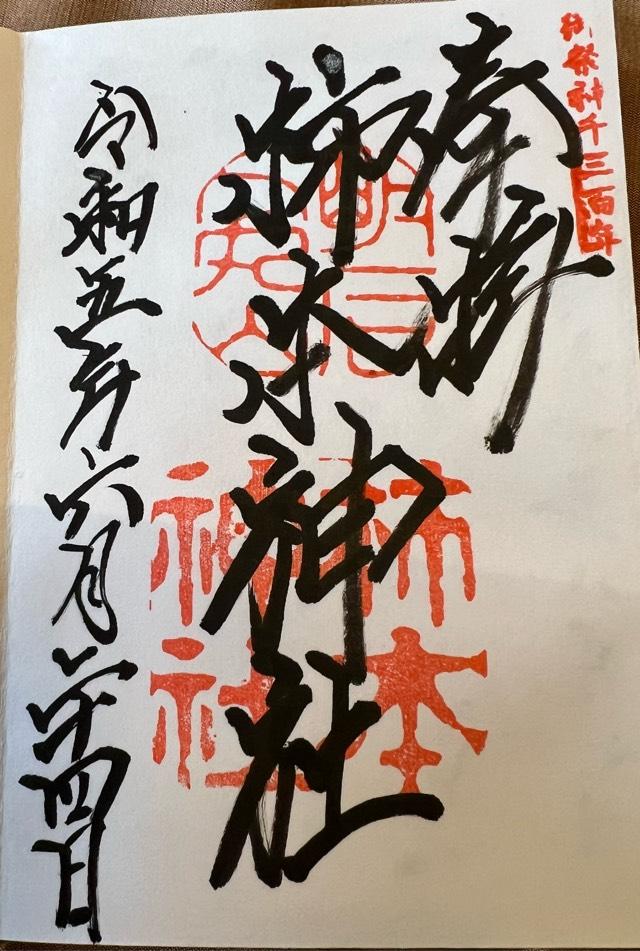 御祭神千三百年
奉拝
柿本神社
柿本
神社
令和五年六月二十四日